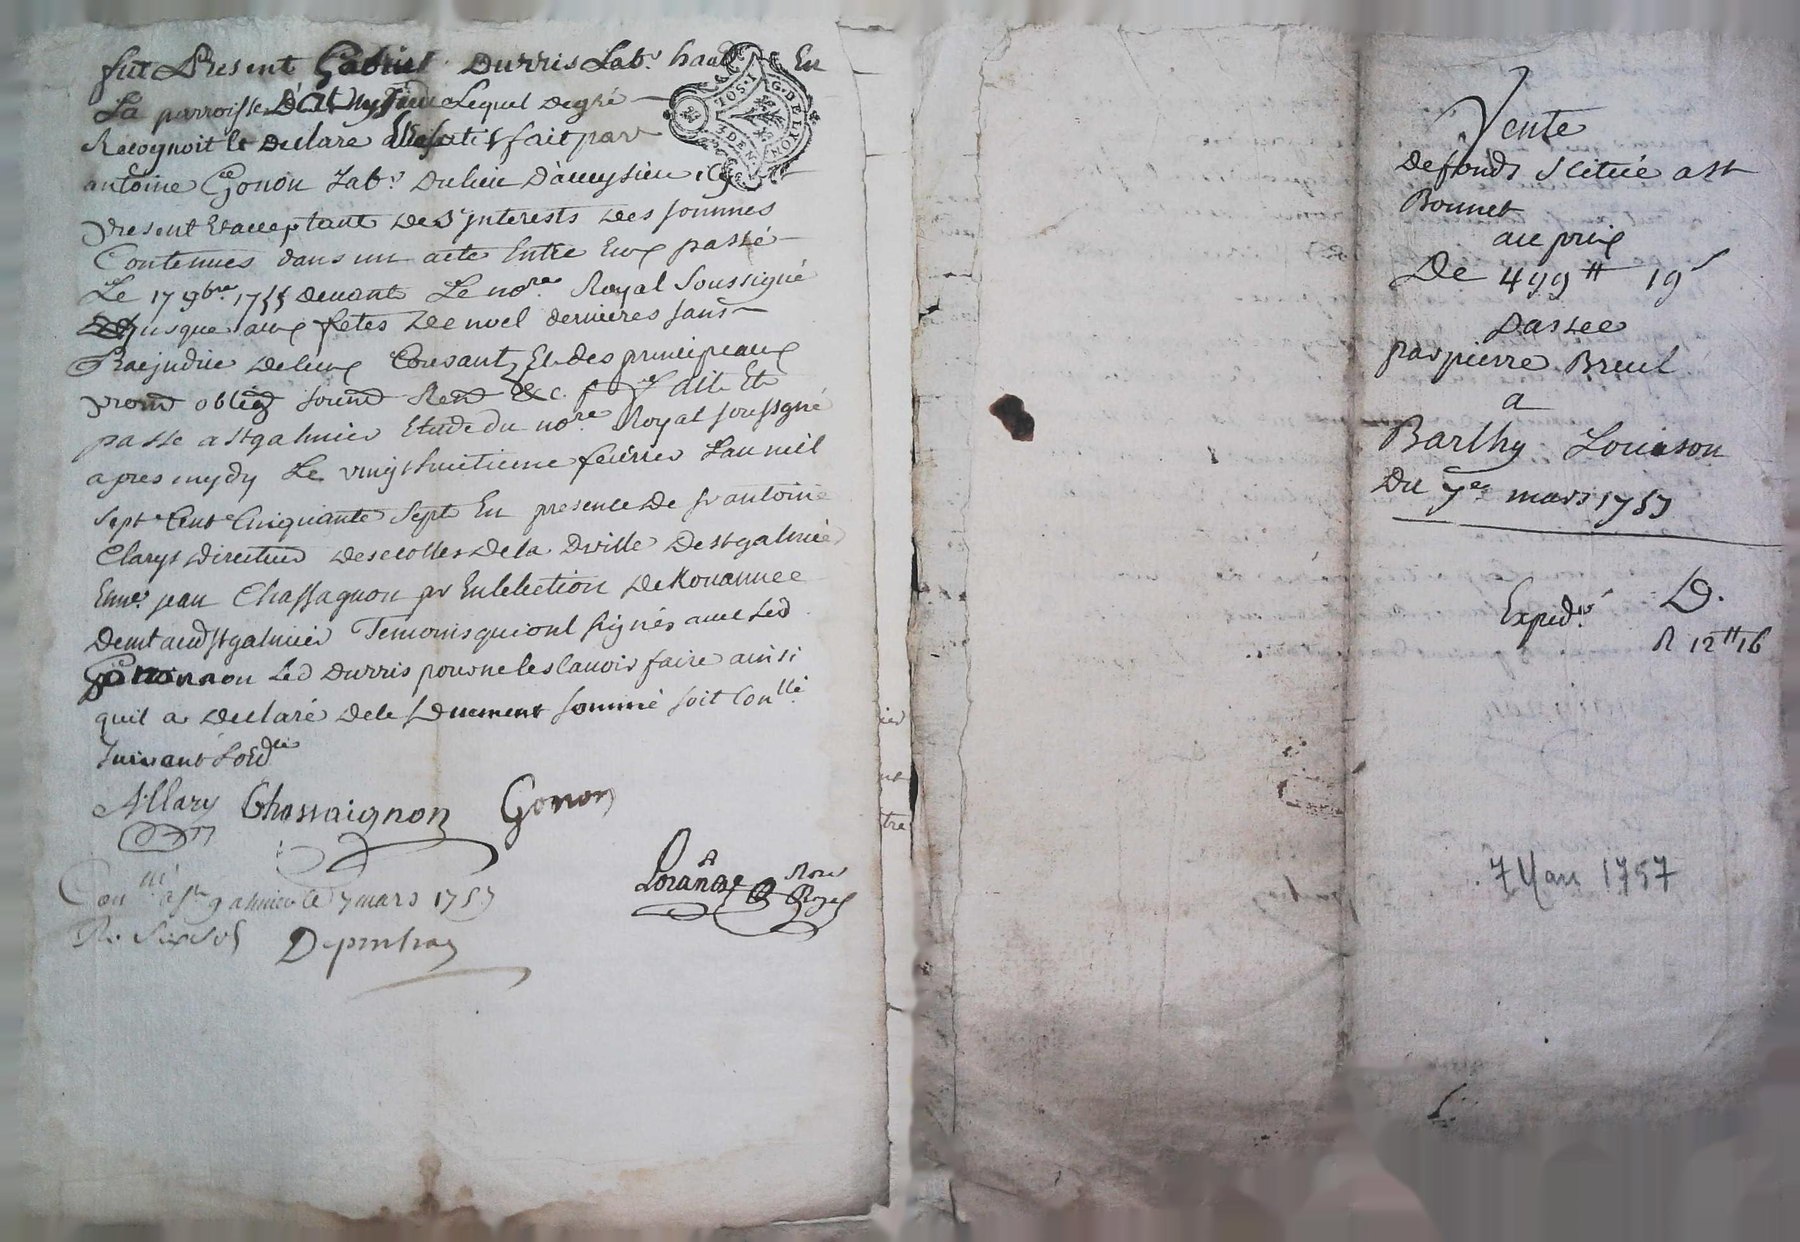 fut Present Gabriel Durris Lab.r hab En
La parroisse D'aveysieu Lequel de gré
Recognoit et declare Etre satisfait par
antoine Gonon Lab.r du lieu D'aveysieu icy
Present Et acceptant des interests des sommes
Contenues dans un acte Entre Eux passé
Le 17 9bre 1755 devant Le no.re Royal Soussigné
jusques aux fetes de noel dernieres sans
Prejudice de ceux Courant Et des principeaux
prom oblig soum Ren &c. f dit Et
passé a st galmier Etude du no.re Royal soussigné
apres mydy Le vingt huitieme fevrier L'an mil
sept Cent Cinquante Sept En presence de sr antoine
Clarys directeur des ecolles de la Dville De st galmier
Et me jean Chassagnon pr En lelection de Rouannee
demt aud st galmier Temoins qui ont signés avec Led
Gonon non Led Durris pour ne le scavoir faire ainsi
quil a declaré de ce Duement sommé soit Con.llé
suivant L'ord
Allary Chassaignon Gonon
Lorange Nore Royal
Con.llé a st galmier le 7 mars 1757
R. six sols
G. DE LYON
DEN.
Vente
De fonds scitué a st
Bonnet
au prix
De 499 tt 19 s
passee
par pierre Breul
a
Barthy Louison
Du 7e mars 1757
Exped.
D.
R 12 tt 16
7 Mars 1757